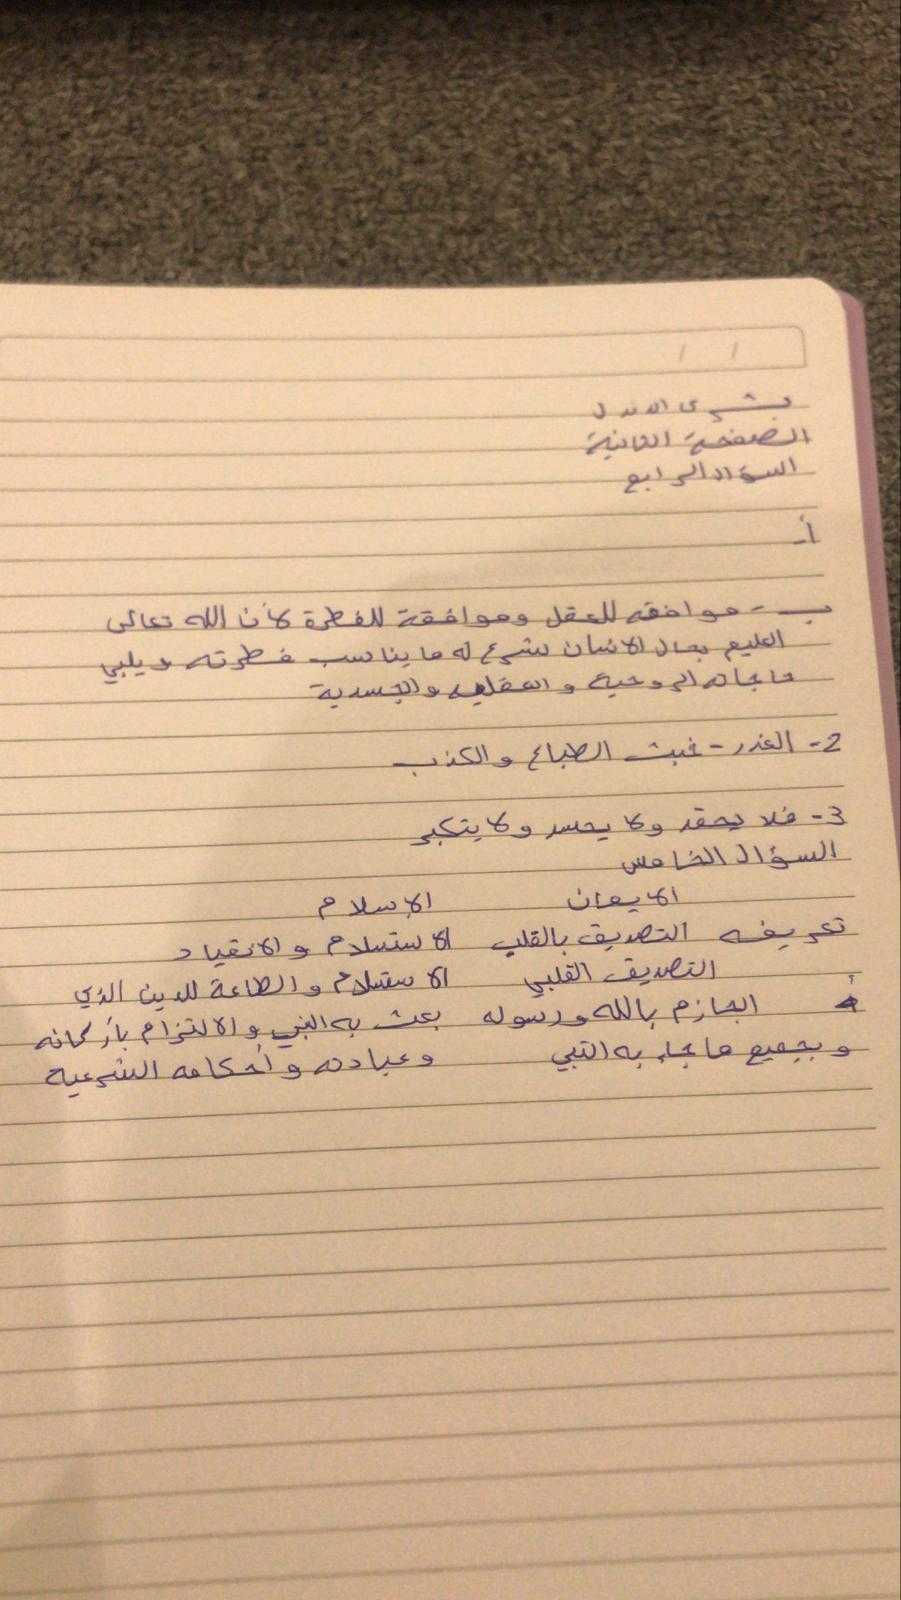 بشرى
الصفحة الثانية
السؤال الرابع
أ-
ب- موافقه للعقل وموافقة للفطرة لأن الله تعالى
العليم بحال الانسان شرع له ما يناسب فطرته ويلبي
حاجاته الروحية والعقليه والجسدية
2- الغدر - خبث الطباع والكذب
3- فلا يحقد ولا يحسد ولا يتكبر
السؤال الخامس
الايمان الإسلام
تعريفه التصديق بالقلب الاستسلام والانقياد
التصديق القلبي الاستسلام والطاعة للدين الذي
أ الجازم بالله ورسوله بعث به النبي والالتزام بأركانه
و بجميع ما جاء به النبي وعبادته وأحكامه الشرعية